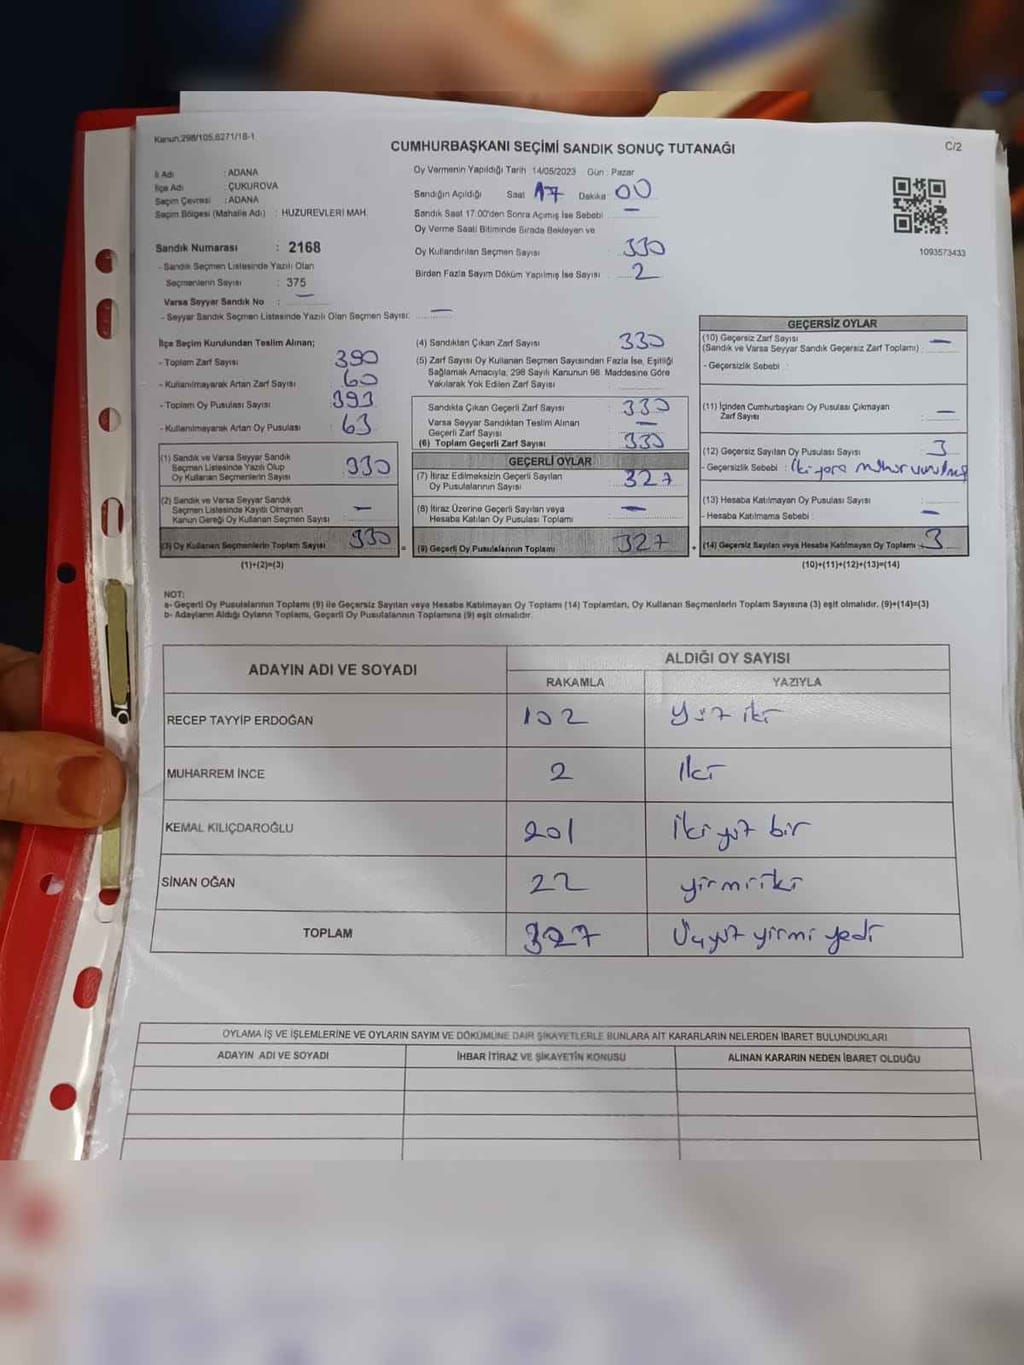 Kanun:298/105,6271/18-1
CUMHURBAŞKANI SEÇİMİ SANDIK SONUÇ TUTANAĞI
C/2
İl Adı : ADANA
İlçe Adı : ÇUKUROVA
Seçim Çevresi : ADANA
Seçim Bölgesi (Mahalle Adı) : HUZUREVLERİ MAH.
Oy Vermenin Yapıldığı Tarih 14/05/2023 Gün : Pazar
Sandığın Açıldığı Saat 17 Dakika 00
Sandık Saat 17.00'den Sonra Açılmış İse Sebebi —
Oy Verme Saati Bitiminde Sırada Bekleyen ve
Oy Kullandırılan Seçmen Sayısı 330
Birden Fazla Sayım Döküm Yapılmış İse Sayısı 2
1093573433
Sandık Numarası : 2168
- Sandık Seçmen Listesinde Yazılı Olan
Seçmenlerin Sayısı : 375
Varsa Seyyar Sandık No : —
- Seyyar Sandık Seçmen Listesinde Yazılı Olan Seçmen Sayısı: —
İlçe Seçim Kurulundan Teslim Alınan;
- Toplam Zarf Sayısı 390
- Kullanılmayarak Artan Zarf Sayısı 60
- Toplam Oy Pusulası Sayısı 393
- Kullanılmayarak Artan Oy Pusulası : 63
(1) Sandık ve Varsa Seyyar Sandık
Seçmen Listesinde Yazılı Olup
Oy Kullanan Seçmenlerin Sayısı 330
(2) Sandık ve Varsa Seyyar Sandık
Seçmen Listesinde Kayıtlı Olmayan
Kanun Gereği Oy Kullanan Seçmen Sayısı —
(3) Oy Kullanan Seçmenlerin Toplam Sayısı 330
(1)+(2)=(3)
(4) Sandıktan Çıkan Zarf Sayısı 330
(5) Zarf Sayısı Oy Kullanan Seçmen Sayısından Fazla İse, Eşitliği
Sağlamak Amacıyla, 298 Sayılı Kanunun 98. Maddesine Göre
Yakılarak Yok Edilen Zarf Sayısı
Sandıkta Çıkan Geçerli Zarf Sayısı : 330
Varsa Seyyar Sandıktan Teslim Alınan
Geçerli Zarf Sayısı —
(6) Toplam Geçerli Zarf Sayısı 330
GEÇERLİ OYLAR
(7) İtiraz Edilmeksizin Geçerli Sayılan
Oy Pusulalarının Sayısı 327
(8) İtiraz Üzerine Geçerli Sayılan veya
Hesaba Katılan Oy Pusulası Toplamı —
(9) Geçerli Oy Pusulalarının Toplamı 327
GEÇERSİZ OYLAR
(10) Geçersiz Zarf Sayısı
(Sandık ve Varsa Seyyar Sandık Geçersiz Zarf Toplamı) : —
- Geçersizlik Sebebi :
(11) İçinden Cumhurbaşkanı Oy Pusulası Çıkmayan
Zarf Sayısı —
(12) Geçersiz Sayılan Oy Pusulası Sayısı 3
- Geçersizlik Sebebi : İki yere mühür vurulmuş
(13) Hesaba Katılmayan Oy Pusulası Sayısı
- Hesaba Katılmama Sebebi : —
(14) Geçersiz Sayılan veya Hesaba Katılmayan Oy Toplamı 3
(10)+(11)+(12)+(13)=(14)
NOT:
a- Geçerli Oy Pusulalarının Toplamı (9) ile Geçersiz Sayılan veya Hesaba Katılmayan Oy Toplamı (14) Toplamları, Oy Kullanan Seçmenlerin Toplam Sayısına (3) eşit olmalıdır. (9)+(14)=(3)
b- Adayların Aldığı Oyların Toplamı, Geçerli Oy Pusulalarının Toplamına (9) eşit olmalıdır.
ADAYIN ADI VE SOYADI ALDIĞI OY SAYISI
RAKAMLA YAZIYLA
RECEP TAYYİP ERDOĞAN 102 Yüz iki
MUHARREM İNCE 2 İki
KEMAL KILIÇDAROĞLU 201 İki yüz bir
SİNAN OĞAN 22 yirmi iki
TOPLAM 327 Üçyüz yirmi yedi
OYLAMA İŞ VE İŞLEMLERİNE VE OYLARIN SAYIM VE DÖKÜMÜNE DAİR ŞİKAYETLERLE BUNLARA AİT KARARLARIN NELERDEN İBARET BULUNDUKLARI
ADAYIN ADI VE SOYADI İHBAR İTİRAZ VE ŞİKAYETİN KONUSU ALINAN KARARIN NEDEN İBARET OLDUĞU